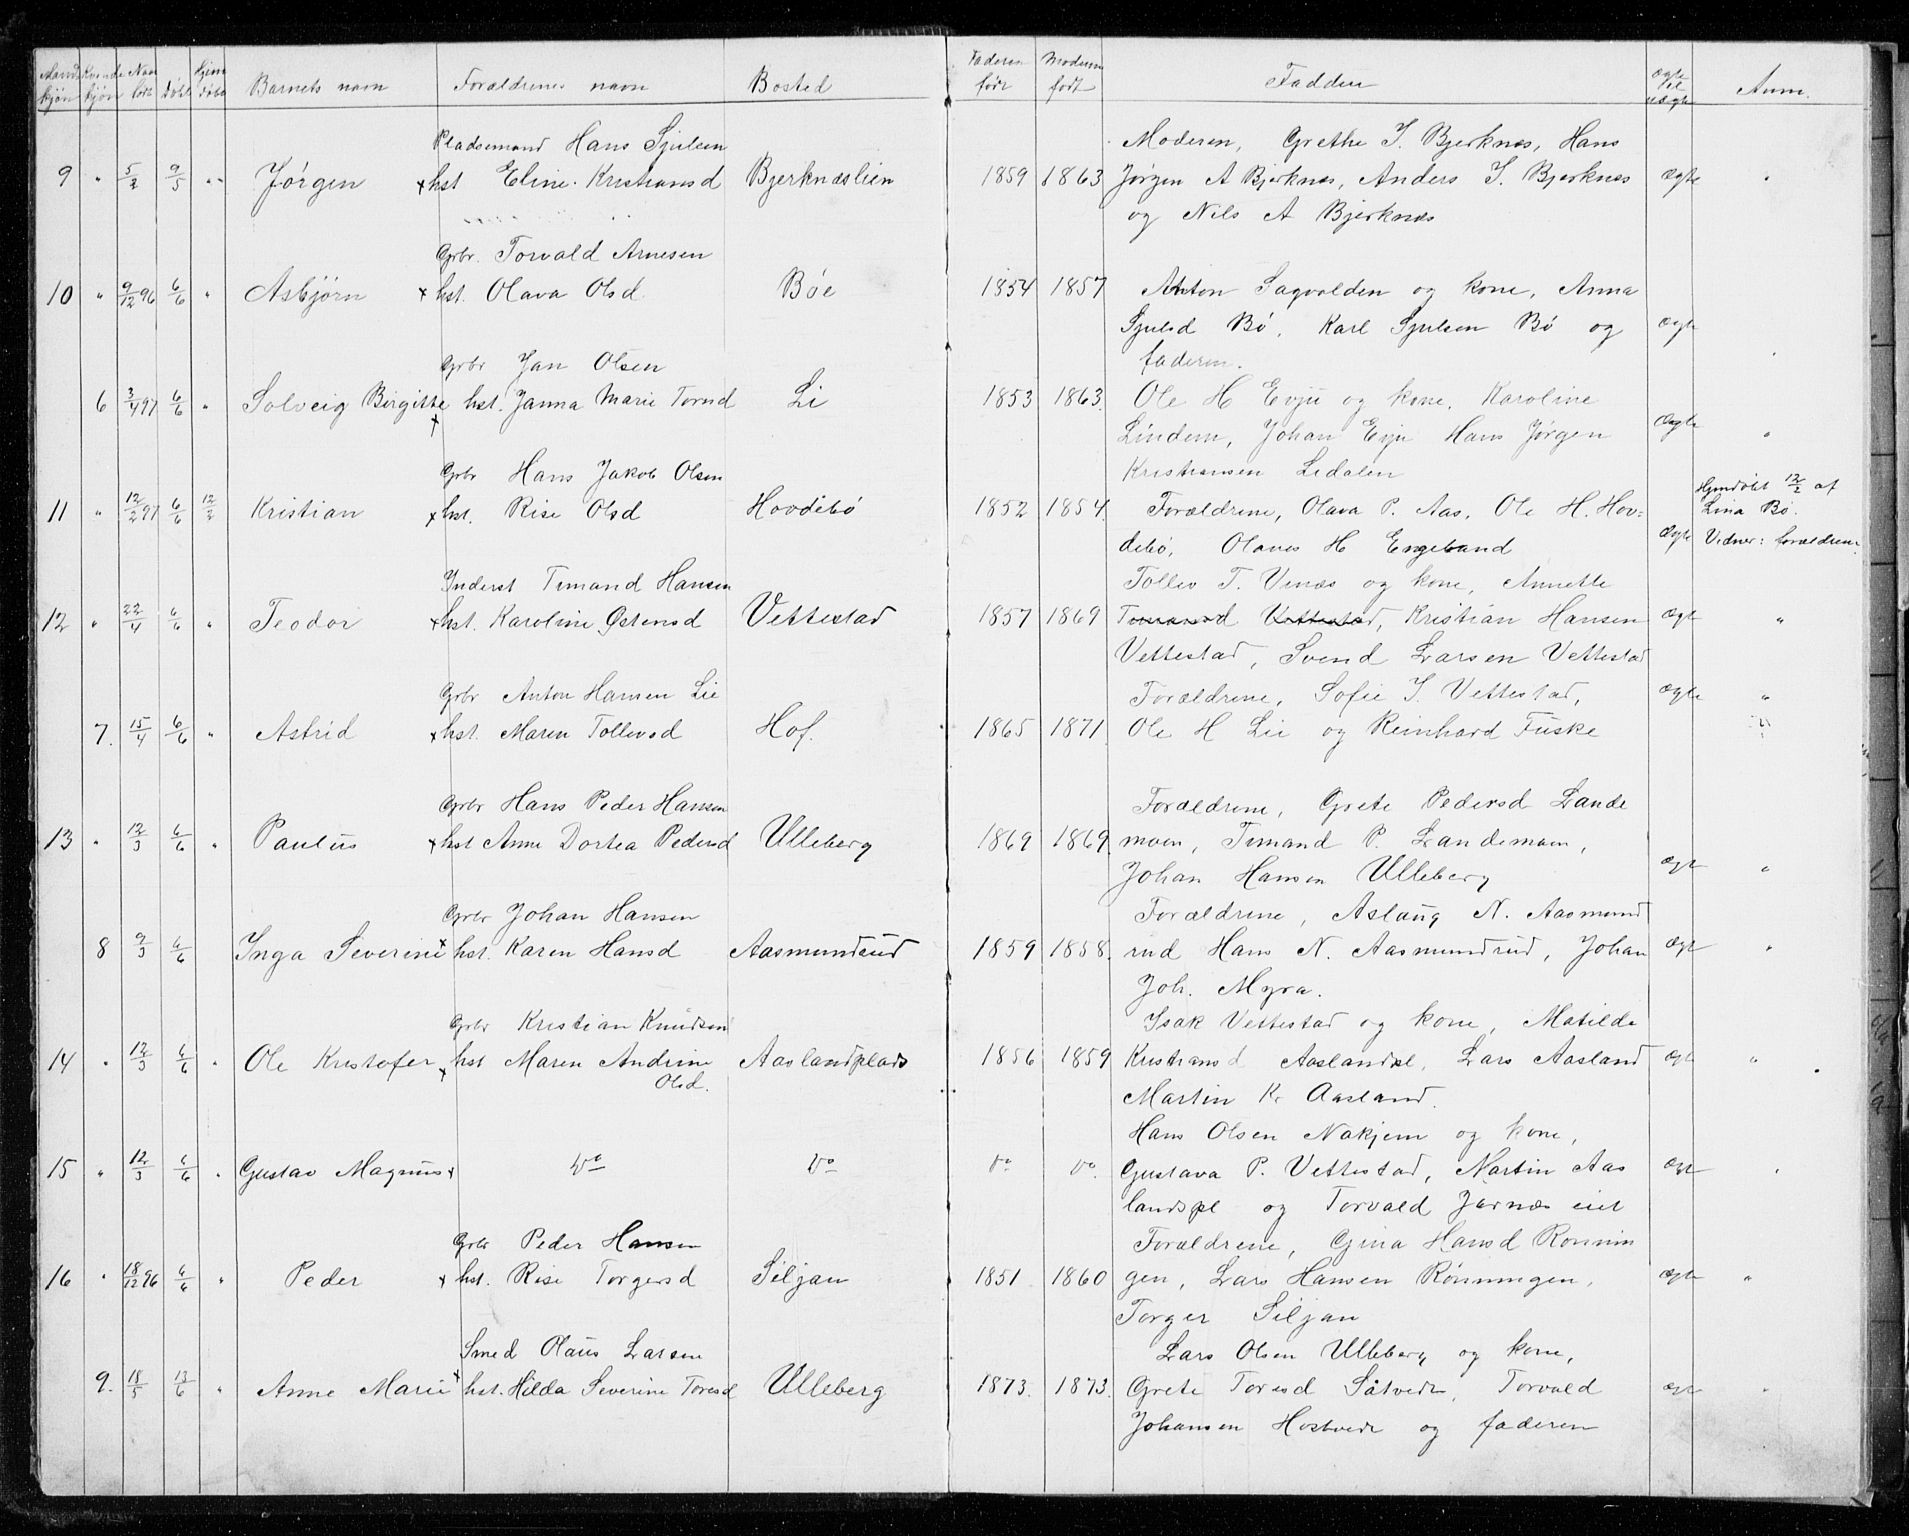 Mands kjøn Kvinde kjøn Naar født døbt Hjem døbt Barnets navn Forældrenes navn Bosted Faderen født Moderen født Faddere ægte el. uægte Anm.
Pladsemand Hans Sjulsen Moderen, Grethe J. Bjerknæs, Hans
9 " 5/2 9/5 " Jørgen hst Eline Kristiansd Bjerknæslien 1859 1863 Jørgen A Bjerknæs, Anders J. Bjerknæs ægte "
og Nils A Bjerknæs
Grbr. Torvald Arnesen
10 " 9/12 96 6/6 " Asbjørn hst. Olava Olsd. Bøe 1854 1857 Anton Sagvolden og kone, Anna
Sjulsd Bø, Karl Sjulsen Bø og ægte
Grbr Jan Olsen faderen.
6 3/4 97 6/6 " Solveig Birgitte hst. Janna Marie Torsd Li 1853 1863. Ole H Evju og kone, Karoline
Lindem, Johan Evju Hans Jørgen ægte "
Grbr Hans Jakob Olsen Kristiansen Lidalen Hjemdøbt 12/2 af
11 " 12/2 97 6/6 12/2 Kristian hst. Rise Olsd Hovdebø 1852 1854. Forældrene, Olava P. Aas, Ole H. Hov= Lina Bø.
debø, Olaves H Engeband ægte Vidner: forældrene
Inderst Timand Hansen Tollev T. Vinæs og kone, Annette
12 " 22/4 6/6 " Teodor hst. Karoline Østensd Vettestad 1857 1869 Tomansd Vettestad, Kristian Hansen ægt "
Vettestad, Svend Larsen Vettestad
Grbr Anton Hansen Lie Forældrene, Sofie J. Vettestad, ægte "
7. 15/4 6/6 " Astrid hst. Maren Tollevsd Hof. 1865 1871 Ole H Lie og Reinhard Fuske
Grbr Hans Peder Hansen Forældrene, Grete Pedersd Lande
13 " 12/3 6/6 " Paulus hst Anne Dortea Pedersd Ulleberg 1869 1869. moen, Timand P. Landemoen,
Johan Hansen Ulleberg ægt "
Grbr Johan Hansen Forældrene, Aslaug N. Aasmund
8 9/3 6/6 Inga Severine hst. Karen Hansd Aasmundrud 1859 1858. rud Hans N. Aasmundrud, Johan ægt "
Joh. Myra.
Grbr Kristian Knudsen Isak Vettestad og kone, Matilde
14 " 12/3 6/6 " Ole Kristofer hst Maren Andrine Aaslandplads 1856 1859 Kristiansd Aaslandpl, Lars Aasland ægt "
Olsd. Martin Kr Aasland.
Hans Olsen Nakjem og kone,
15 " 12/3 6/6 " Gustav Magnus Do Do Do Do. Gustava P. Vettestad, Martin Aas ægt
landspl og Torvald Jarnæs eiet
Grbr Peder Hansen Forældrene, Gina Hansd Rønnin
16 " 18/12 96 6/6 " Peder hst. Rise Torgersd Siljan 1851 1860 gen, Lars Hansen Rønningen, ægte "
Torger Siljan
Smed Olaus Larsen Lars Olsen Ulleberg og kone,
9. 18/5 13/6 " Anne Marie hst. Hilda Severine Toresd Ulleberg 1873. 1873. Grete Toresd Såtvedt, Torvald ægt "
Johansen Hostvedt og faderen